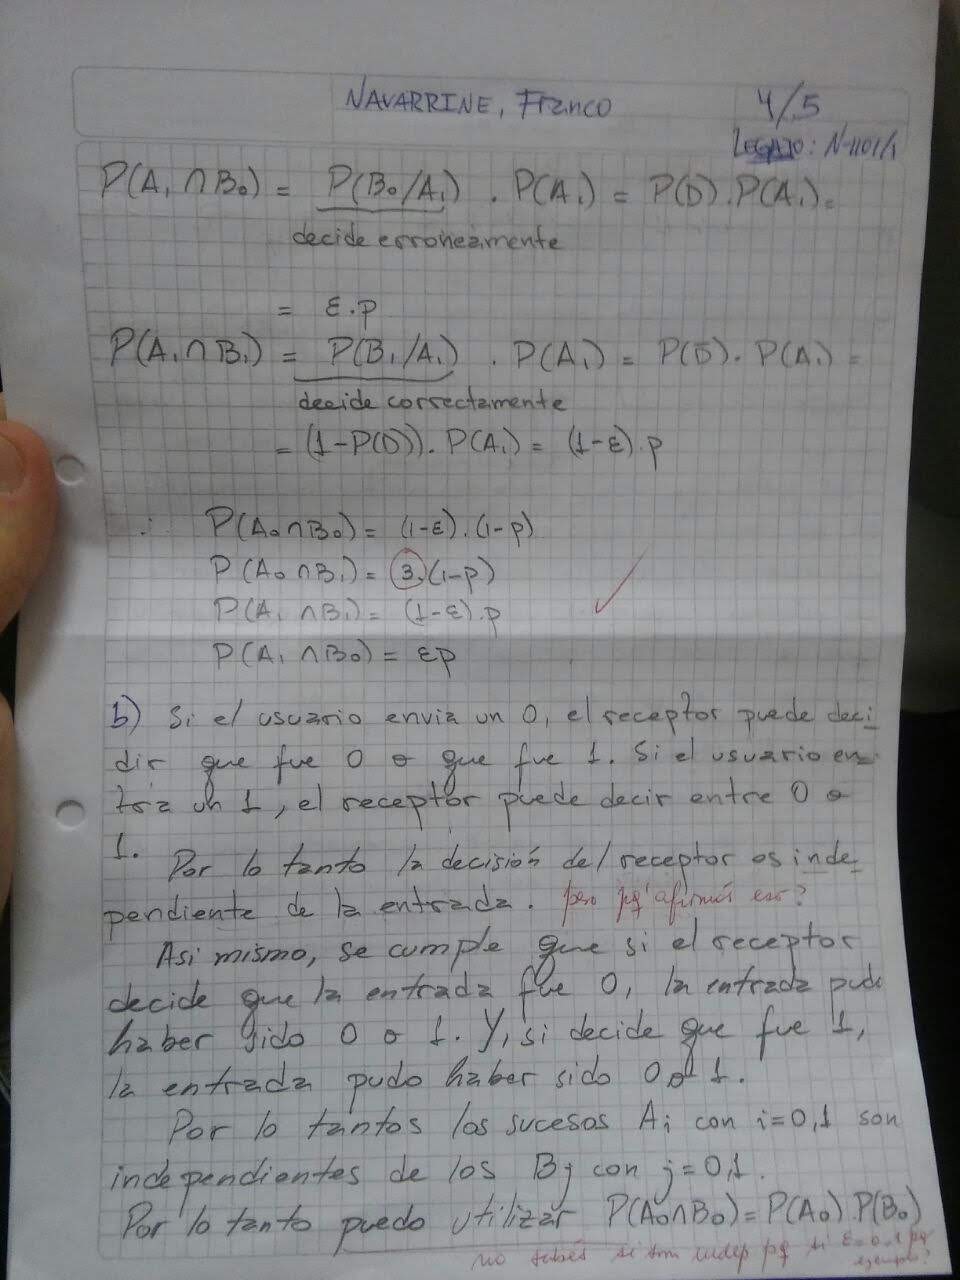 NAVARRINE, Franco
4/5
LEGAJO: N-1101/1
P(A₁∩B₀) = P(B₀/A₁) . P(A₁) = P(D).P(A₁) =
decide erroneamente
= ε.p
P(A₁∩B₁) = P(B₁/A₁) . P(A₁) = P(D̄). P(A₁) =
decide correctamente
= (1-P(D)). P(A₁) = (1-ε).p
∴ P(A₀∩B₀) = (1-ε).(1-p)
P(A₀∩B₁) = 3.(1-p)
P(A₁∩B₁) = (1-ε).p
P(A₁∩B₀) = εp
b) Si el usuario envia un 0, el receptor puede deci
dir que fue 0 o que fue 1. Si el usuario en
tra un 1, el receptor puede decir entre 0 o
1.
Por lo tanto la decisión del receptor es inde
pendiente de la entrada. pero pq' afirmás eso?
Asi mismo, se cumple que si el receptor
decide que la entrada fue 0, la entrada pudo
haber sido 0 o 1. Y, si decide que fue 1,
la entrada pudo haber sido 0 o 1.
Por lo tantos los sucesos Ai con i=0,1 son
independientes de los Bj con j=0,1.
Por lo tanto puedo utilizar P(A₀∩B₀)=P(A₀).P(B₀)
no sabés si son indep pq si ε=0.1 pq
ejemplo?